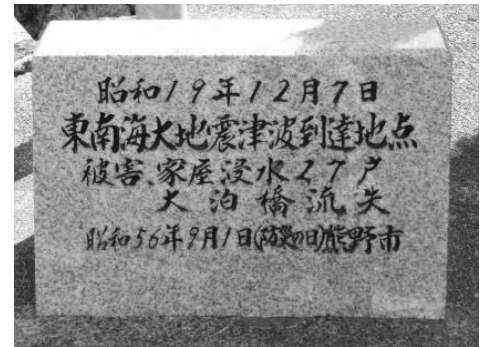 昭和19年12月7日
東南海大地震津波到達地点
被害、家屋浸水27戸
大泊橋流失
昭和56年9月1日(防災の日)熊野市